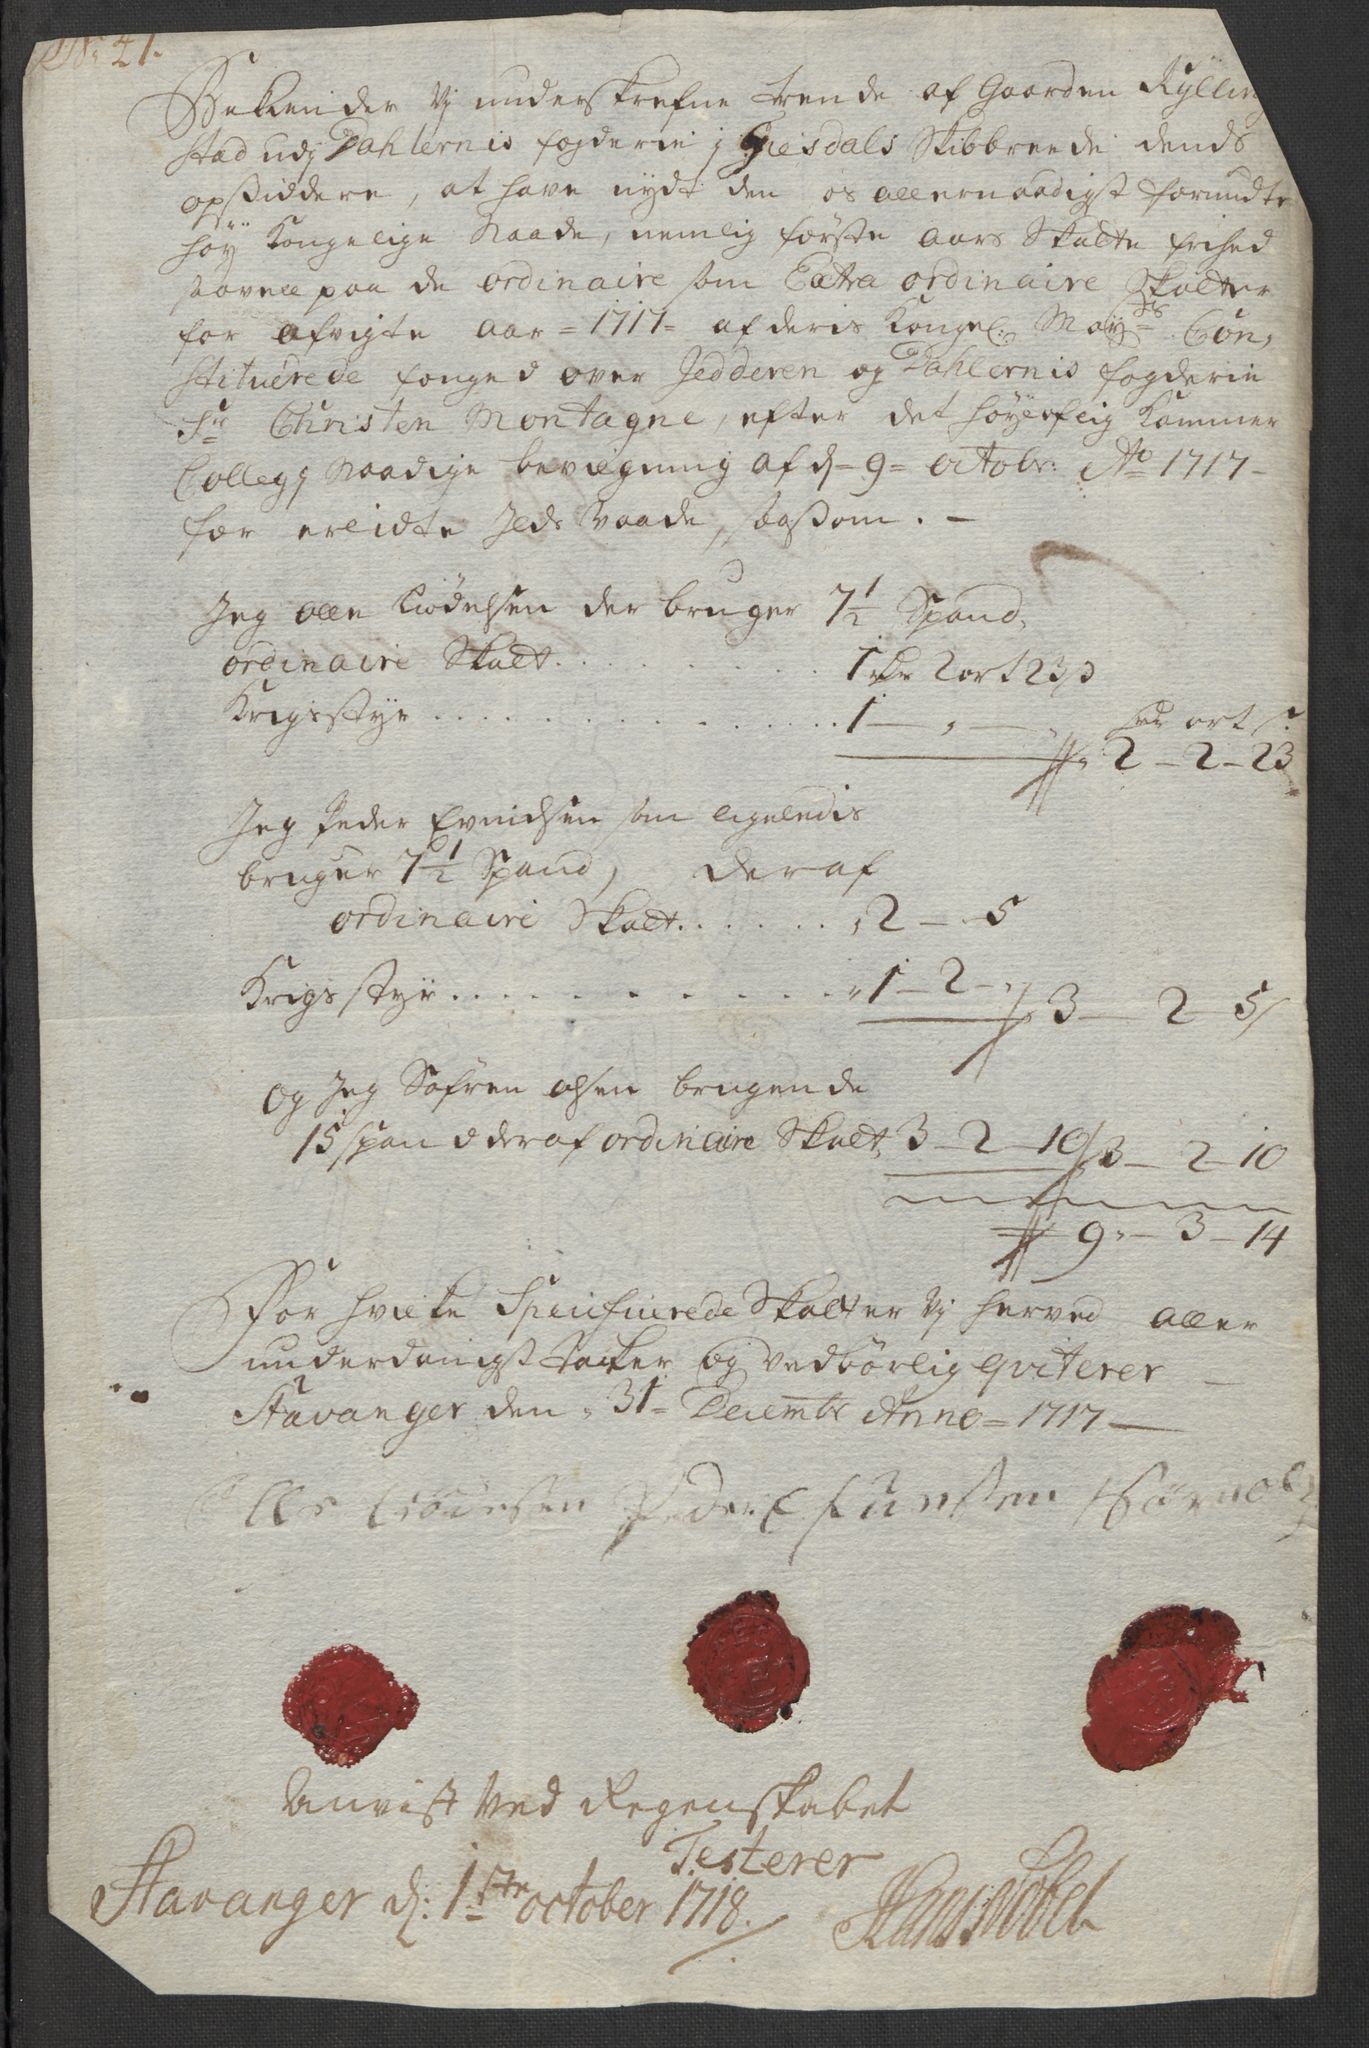 No 21.
Bekiender Vj underskrefne trende af Gaarden Kylling
stad udj Dahlernis fogderie j Giesdals Skibbreede dends
opsiddere, at have nydt den os allernaadigst forundte
høy Kongelige Naade, nemlig første aars Skatte frihed
saavell paa de ordinaire som Extra ordinaire Skatter
for afvigte aar = 1717 = af deris Kongel: May:ts Con,
stituerede fouged over Jedderen og Dahlernis fogderie
Sr Christen Montagne, efter det høyloflig Kammer
Collegij Naadige bevilgning af d = 9 = octobr: Ao 1717 -
for erlidte Ilds Vaade, saasom. -
Jeg olle Giødelsen der bruger 7 1/2 Spand,
ordinaire Skatt. . . . . . . . . 1 rdr 2 ort 23 s
Krigsstyr . . . . . . . . . . . . 1 — , — „ rdr ort s
2 — 2 — 23
Jeg Peder Evindsen som ligeledis
bruger 7 1/2 Spand, deraf
ordinaire Skatt. . . . . . „ 2 — — 5
Krigsstyr. . . . . . . . . . „ 1 — 2 — „ 3 — 2 — 5
og Jeg Søfren olsen brugende
15 span d deraf ordinaire Skatt, 3 — 2 — 10 3 — 2 — 10
9 „ — 3 — 14
For hvilke Specificerede Skatter Vj herved aller
underdanigst tacker og vedbørlig qviterer —
Stavanger den „ 31 = Decembr Anno = 1717 —
Olle Peder
Anvist Ved Regenskabet
Testerer
Stavanger d: 1ste october 1718. Hans Nobel